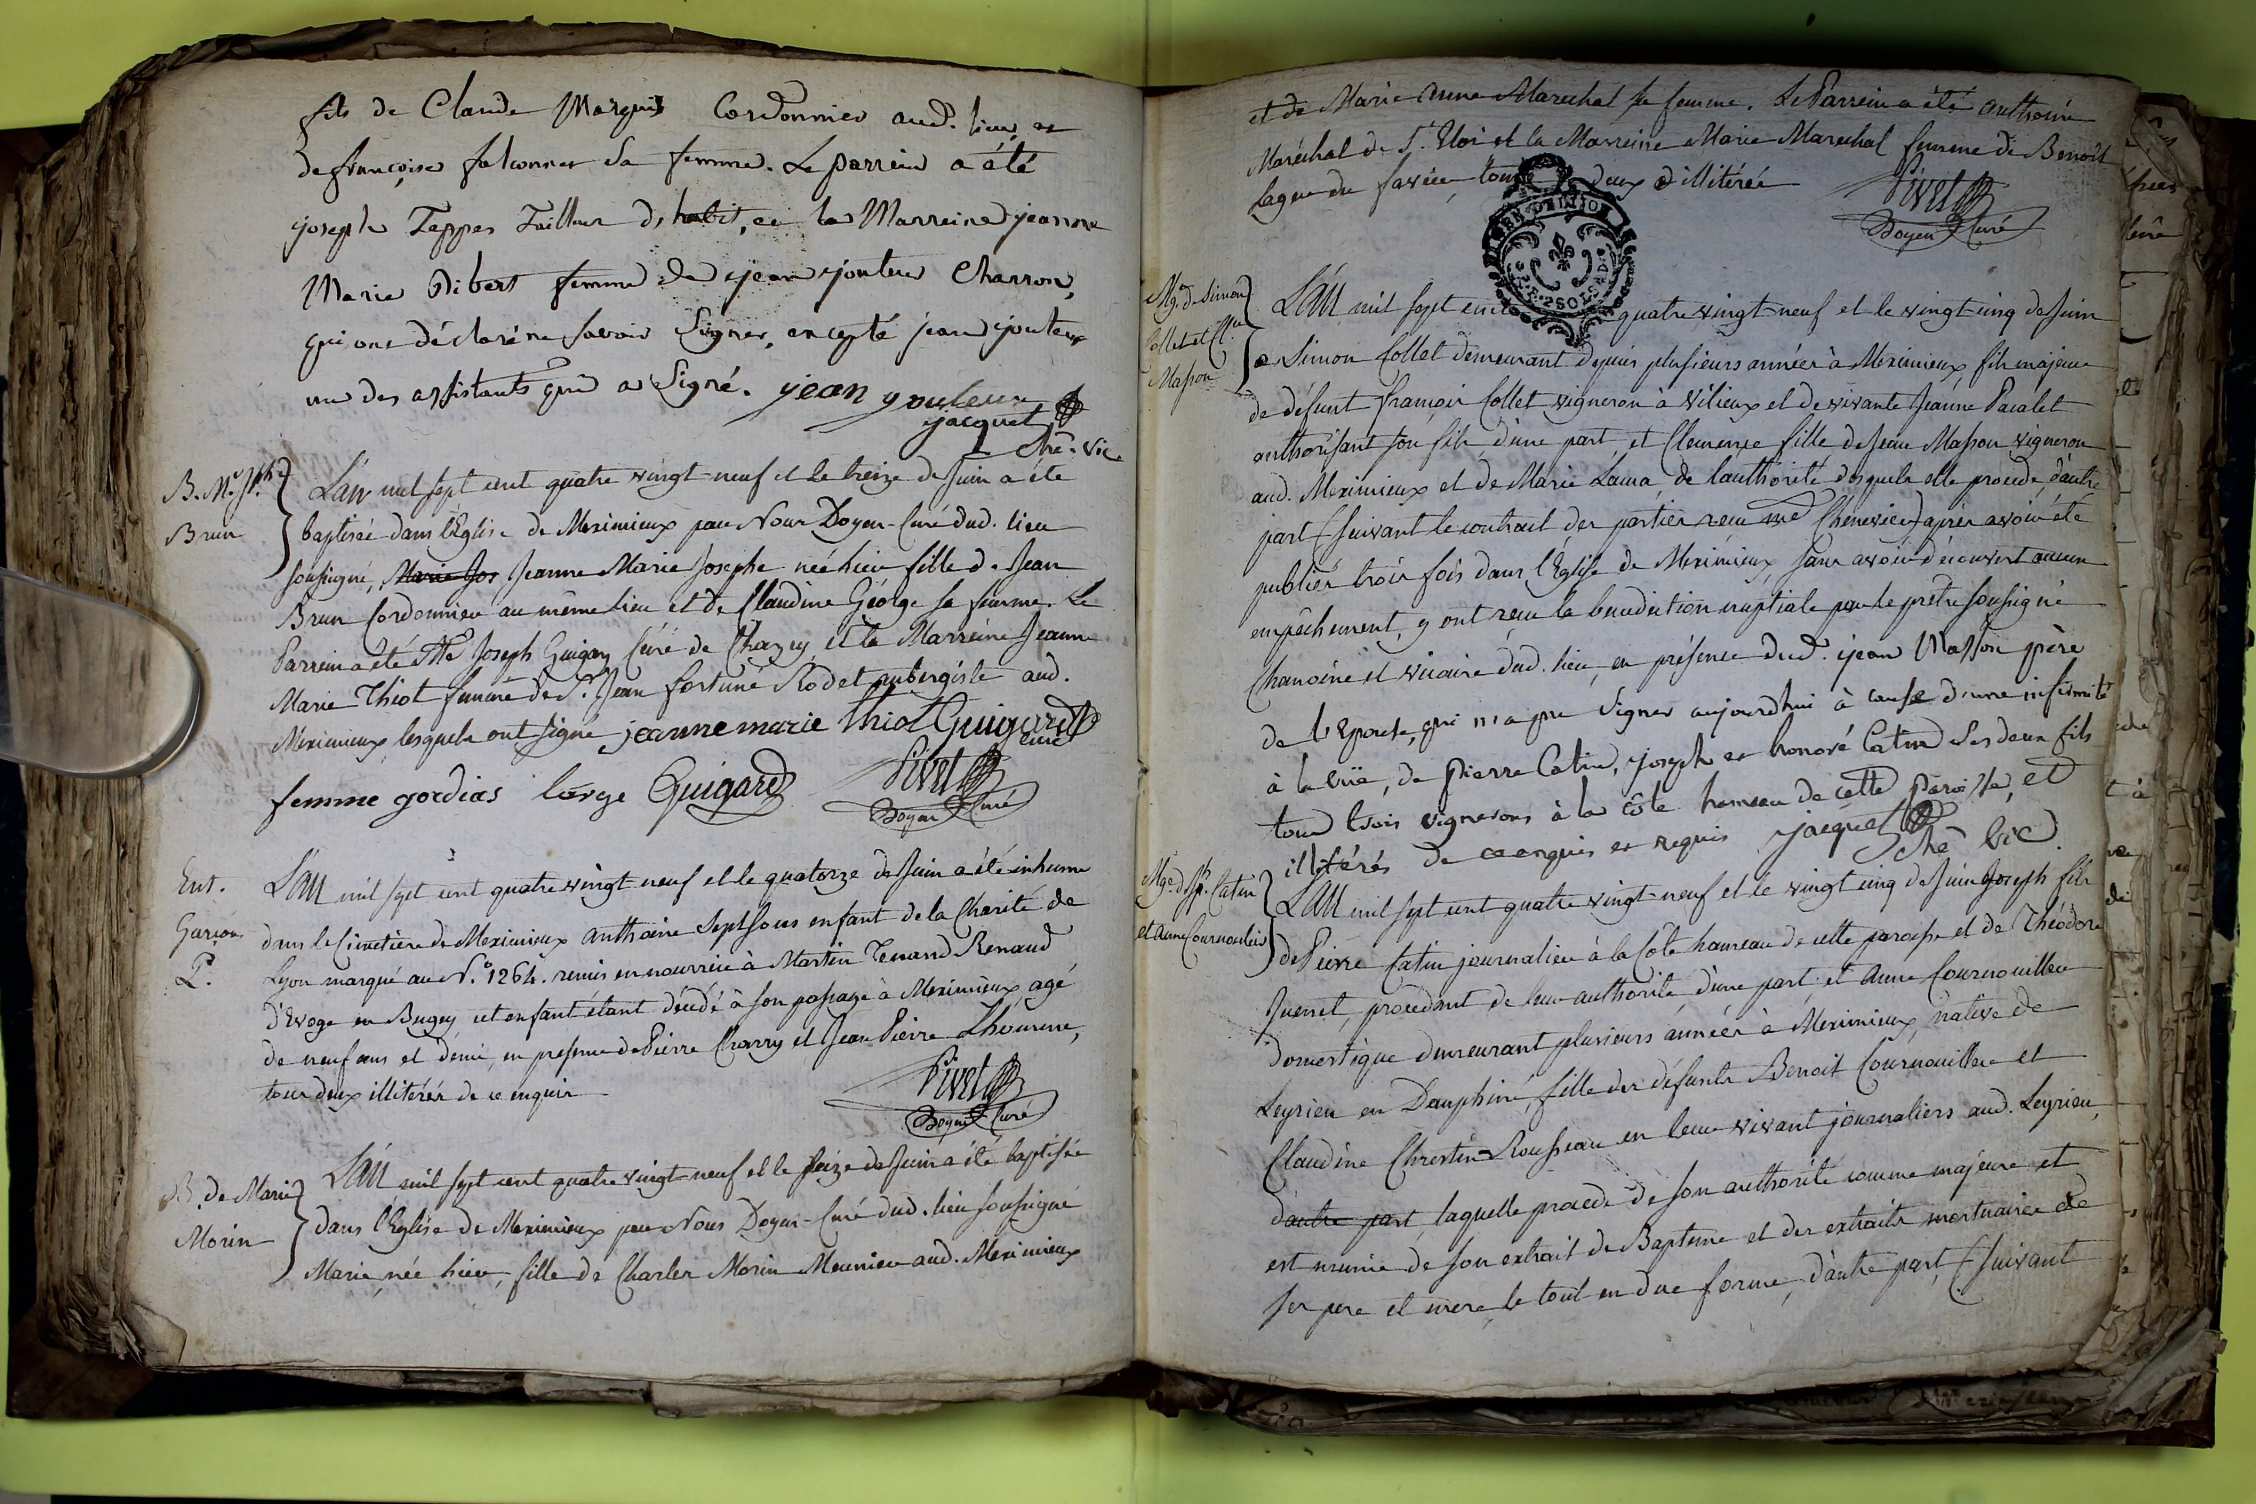 fils de Claude Marquis Cordonnier aud. lieu, et
de françoise falconnet Sa femme. Le parrein a été
joseph Teppes Tailleur d'habit, et la Marreine jeanne
Marie Dibert femme de jean jouteur Charron,
qui ont déclaré ne Savoir Signer, excepté jean jouteur
un des assistants qui a Signé. jean youteur
jacquet
Chñe. vic
B. Me. Jphe.
Brun
L'an mil sept cent quatre vingt-neuf et le treize de Juin a été
baptisée dans l'Eglise de Meximieux par Nous Doyen-Curé dud. lieu
soussigné, Marie Jos Jeanne Marie Josephe née hier fille de Jean
Brun Cordonnier au même lieu et de Claudine George sa femme. Le
Parrein a été Me Joseph Guigard Curé de Chazey, et la Marreine Jeanne
Marie Thiot femme de S. Jean fortuné Rodet aubergiste aud.
Meximieux, lesquels ont signé jeanne marie thiot Guigard
curé
femme gordias lorge Guigard Pivet
Doyen Curé
Ent.
Garçon
P.
L'an mil sept cent quatre vingt neuf et le quatorze de Juin a été inhumé
dans le Cimetiere de Meximieux anthoine Septsous enfant de la Charité de
Lyon marqué au N.º 1264. remis en nourrice à Martin Tenand Renaud
d'Evoge en Bugey cet enfant étant décédé à son passage à Meximieux, agé
de neuf ans et demi, en presence de Pierre Charry et Jean Pierre Lhoume,
tous deux illitérés de ce enquis
Pivet
Doyen Curé
B. de Marie
Morin
L'an mil sept cent quatre vingt-neuf et le seize de Juin a été baptisée
dans l'Eglise de Meximieux par Nous Doyen-Curé dud. lieu soussigné
Marie, née hier, fille de Charles Morin Meunier aud. Meximieux
et de Marie Anne Marechal sa femme. Le Parrein a été anthoine
Maréchal de St. Eloi et la Marreine Marie Marechal femme de Benoît
deux illitérés
Pivet
Doyen Curé
Mge. de Simon
Collet et Cl.
Masson
L'an mil sept cent quatre vingt-neuf et le vingt-cinq de Juin
Simon Collet demeurant depuis plusieurs années à Meximieux, fils majeur
de défunt françois Collet vigneron à Vilieux et de vivante Jeanne Pacalet
authorisant son fils, d'une part, et Clemence fille de Jean Masson vigneron
aud. Meximieux et de Marie Lama, de l'authorité desquels elle procede d'autre
part (suivant le contrait des parties reçu me Chenevier) après avoir été
publiés trois fois dans l'Eglise de Meximieux, sans avoir découvert aucun
empêchement, y ont reçu la benediction nuptiale par le prêtre soussigné
Chanoine et vicaire dud. lieu, en présence dud. jean Masson père
de l'Epouse, qui n'a pu Signer aujourdhui à cause d'une infirmité
à la vüe, de pierre Catin, joseph et honoré Catin Ses deux fils
tous trois vignerons à la côte hameau de cette paroisse, et
illitérés de ce enquis et requis jacquet
Chñe Vic.
Mge. de Jph. Catin
et Anne Cournouiller
L'an mil sept cent quatre vingt-neuf et le vingt cinq de Juin Joseph fils
de Pierre Catin journalier à la Côte hameau de cette paroisse et de Théodore
Juenet, procédant de leur authorité, d'une part, et Anne Cournouiller
domestique demeurant plusieurs années à Meximieux, native de
Leyrieu en Dauphiné, fille des défunts Benoit Cournouiller et
Claudine Chrestin-Rousseau en leur vivant journaliers aud. Leyrieu,
d'autre part, laquelle procede de son authorité comme majeure et
est munie de son extrait de Baptême et des extraits mortuaires de
ses pere et mere, le tout en due forme, d'autre part, (suivant